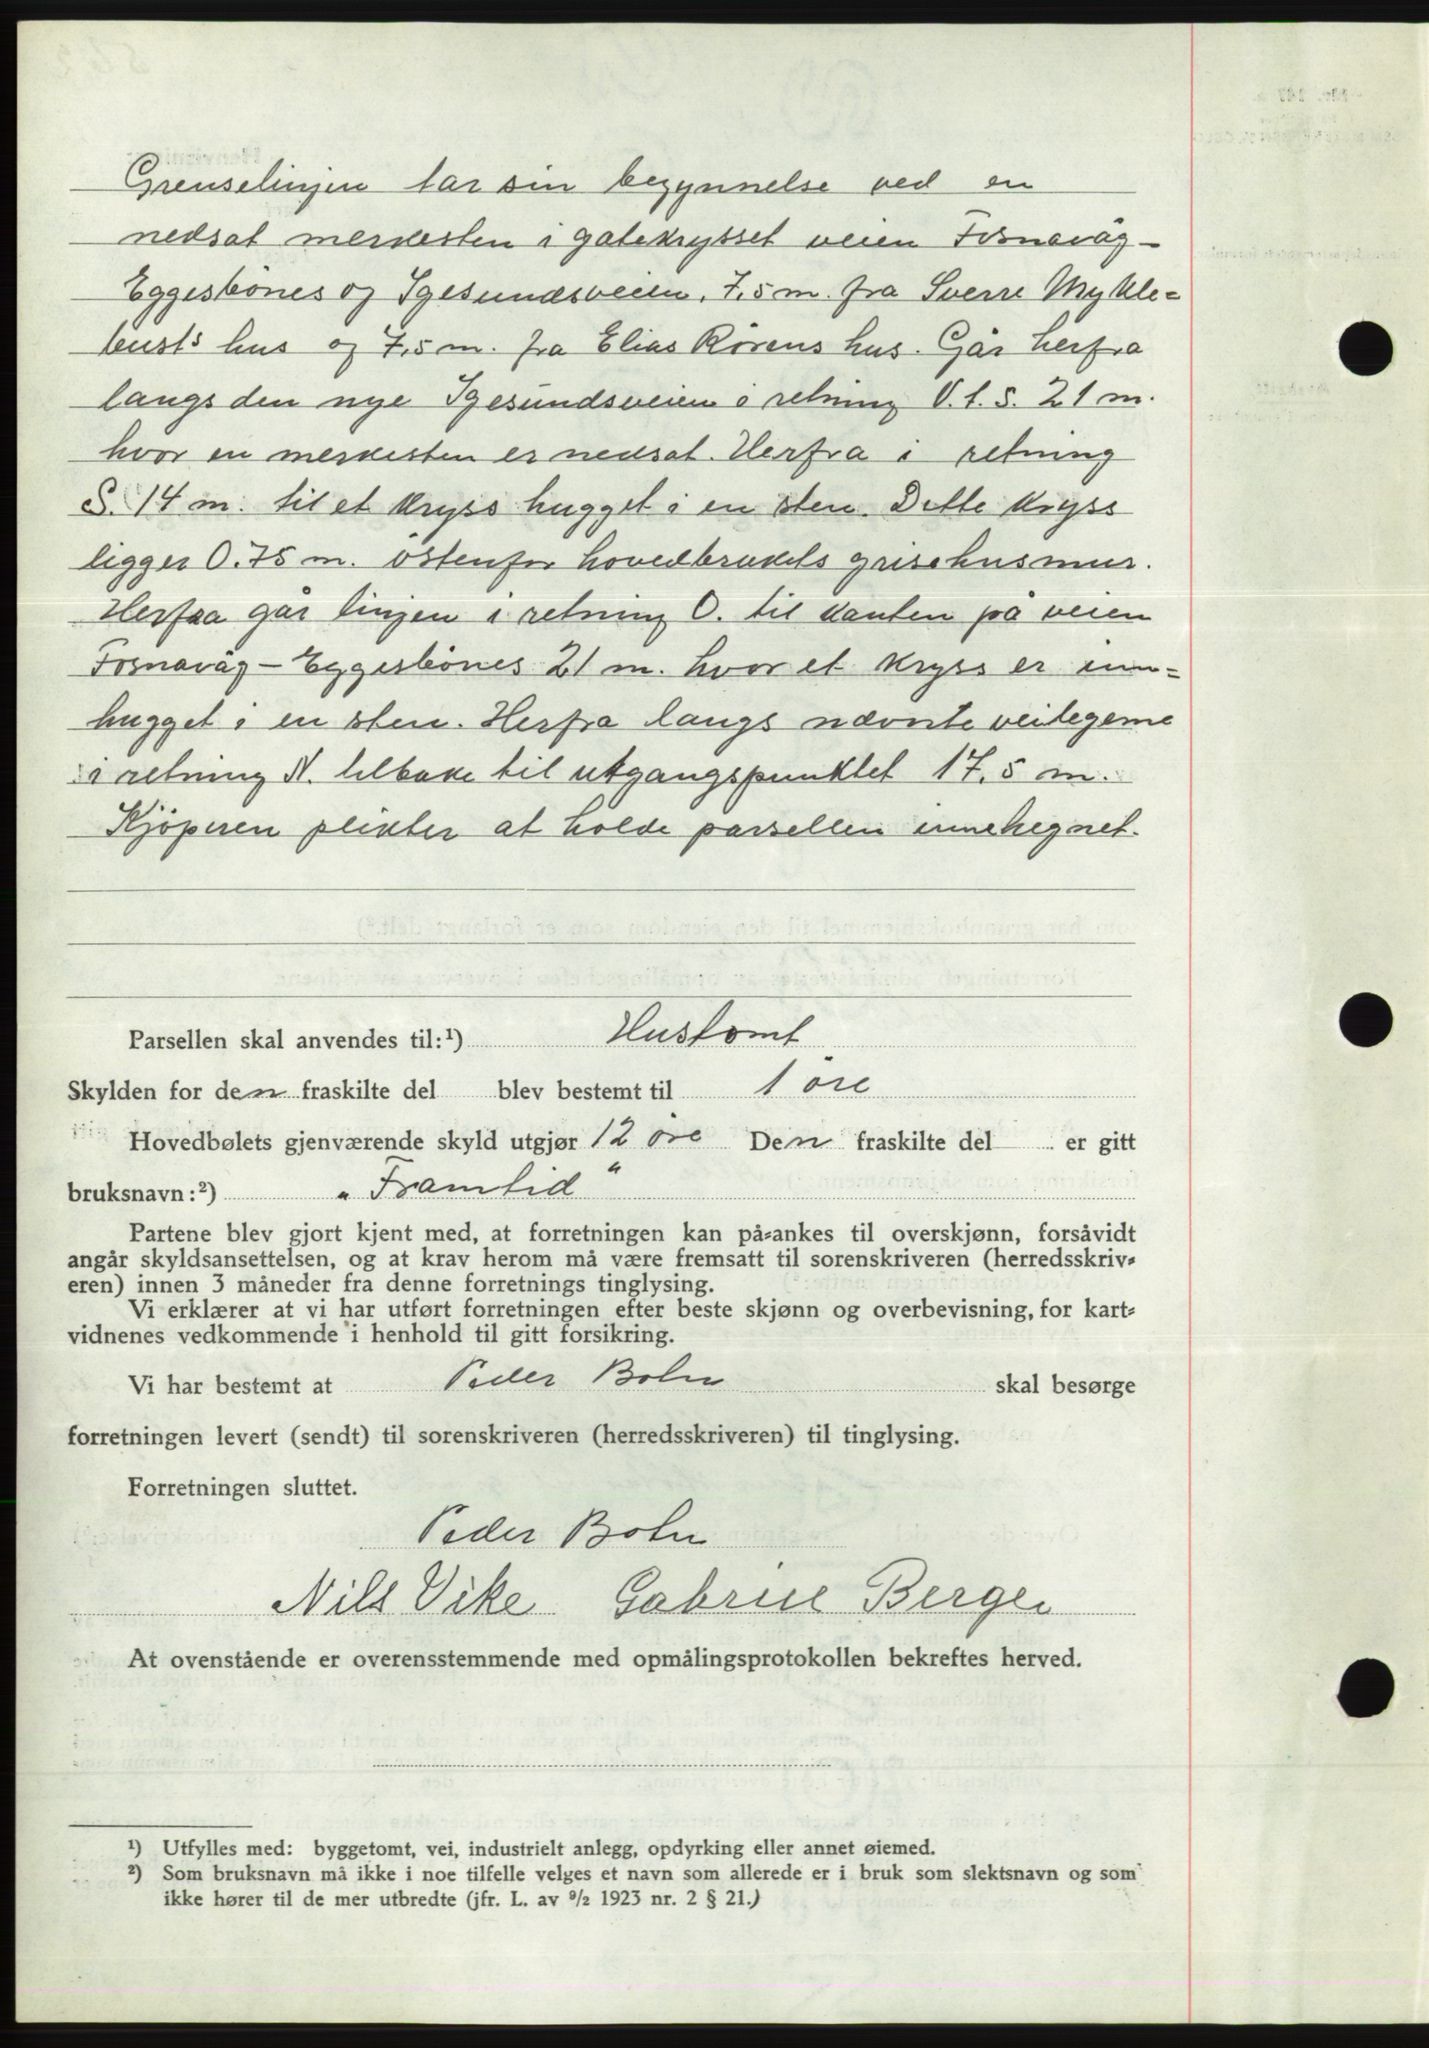 Grenselinjen tar sin begynnelse ved en
nedsat merkesten i gatekrysset veien Fosnavåg-
Eggesbönes og Igesundsveien, 7,5 m. fra Sverre Mykle=
busts hus og 7,5 m. fra Elias Rörens hus. Går herfra
langs den nye Igesundsveien i retning V.t.S. 21 m.
hvor en merkesten er nedsat. Herfra i retning
S. 14 m. til et kryss hugget i en sten. Dette kryss
ligger 0.75 m. östenfor hovedbrukets grisehusmur.
Herfra går linjen i retning O. til kanten på veien
Fosnavåg-Eggesbönes 21 m. hvor et kryss er inn=
hugget i en sten. Herfra langs nævnte veilegeme
i retning N. tilbake til utgangspunktet 17,5 m.
Kjöperen plikter at holde parsellen innehegnet.
Parsellen skal anvendes til:¹) Hustomt
Skylden for den fraskilte del blev bestemt til 1 öre
Hovedbølets gjenværende skyld utgjør 12 öre Den fraskilte del er gitt
bruksnavn:²) „Framtid“
Partene blev gjort kjent med, at forretningen kan på-ankes til overskjønn, forsåvidt
angår skyldsansettelsen, og at krav herom må være fremsatt til sorenskriveren (herredsskriv-
eren) innen 3 måneder fra denne forretnings tinglysing.
Vi erklærer at vi har utført forretningen efter beste skjønn og overbevisning, for kart-
vidnenes vedkommende i henhold til gitt forsikring.
Vi har bestemt at Peder Boln skal besørge
forretningen levert (sendt) til sorenskriveren (herredsskriveren) til tinglysing.
Forretningen sluttet.
Peder Boln
Nils Vike Gabriel Berge
At ovenstående er overensstemmende med opmålingsprotokollen bekreftes herved.
¹) Utfylles med: byggetomt, vei, industrielt anlegg, opdyrking eller annet øiemed.
²) Som bruksnavn må ikke i noe tilfelle velges et navn som allerede er i bruk som slektsnavn og som
ikke hører til de mer utbredte (jfr. L. av 9/2 1923 nr. 2 § 21.)